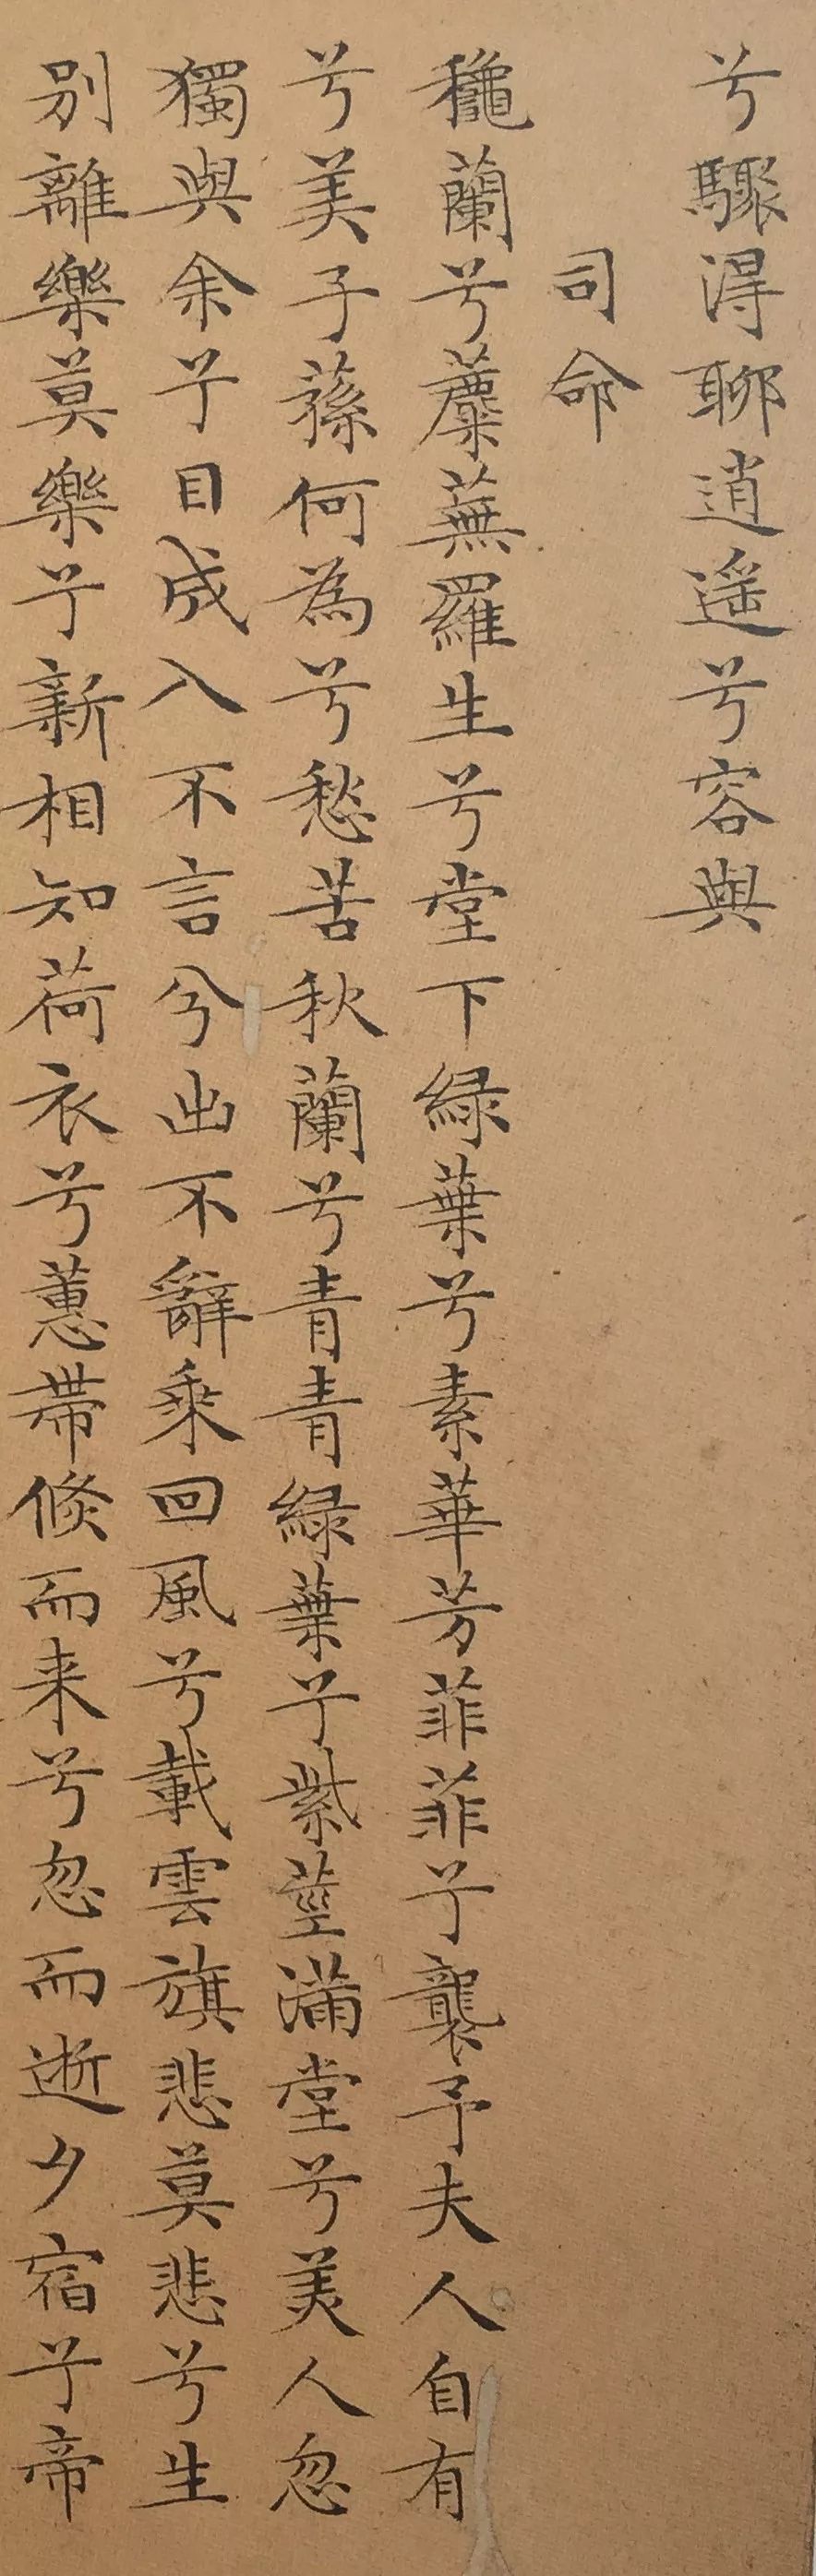 兮驟得聊逍遥兮容與
司命
穐蘭兮蘪蕪羅生兮堂下緑葉兮素華芳菲菲兮襲予夫人自有
兮美子蓀何為兮愁苦秋蘭兮青青緑葉兮紫莖滿堂兮美人忽
獨與余兮目成入不言兮出不辭乘回風兮載雲旗悲莫悲兮生
别離樂莫樂兮新相知荷衣兮蕙帶倐而来兮忽而逝夕宿兮帝